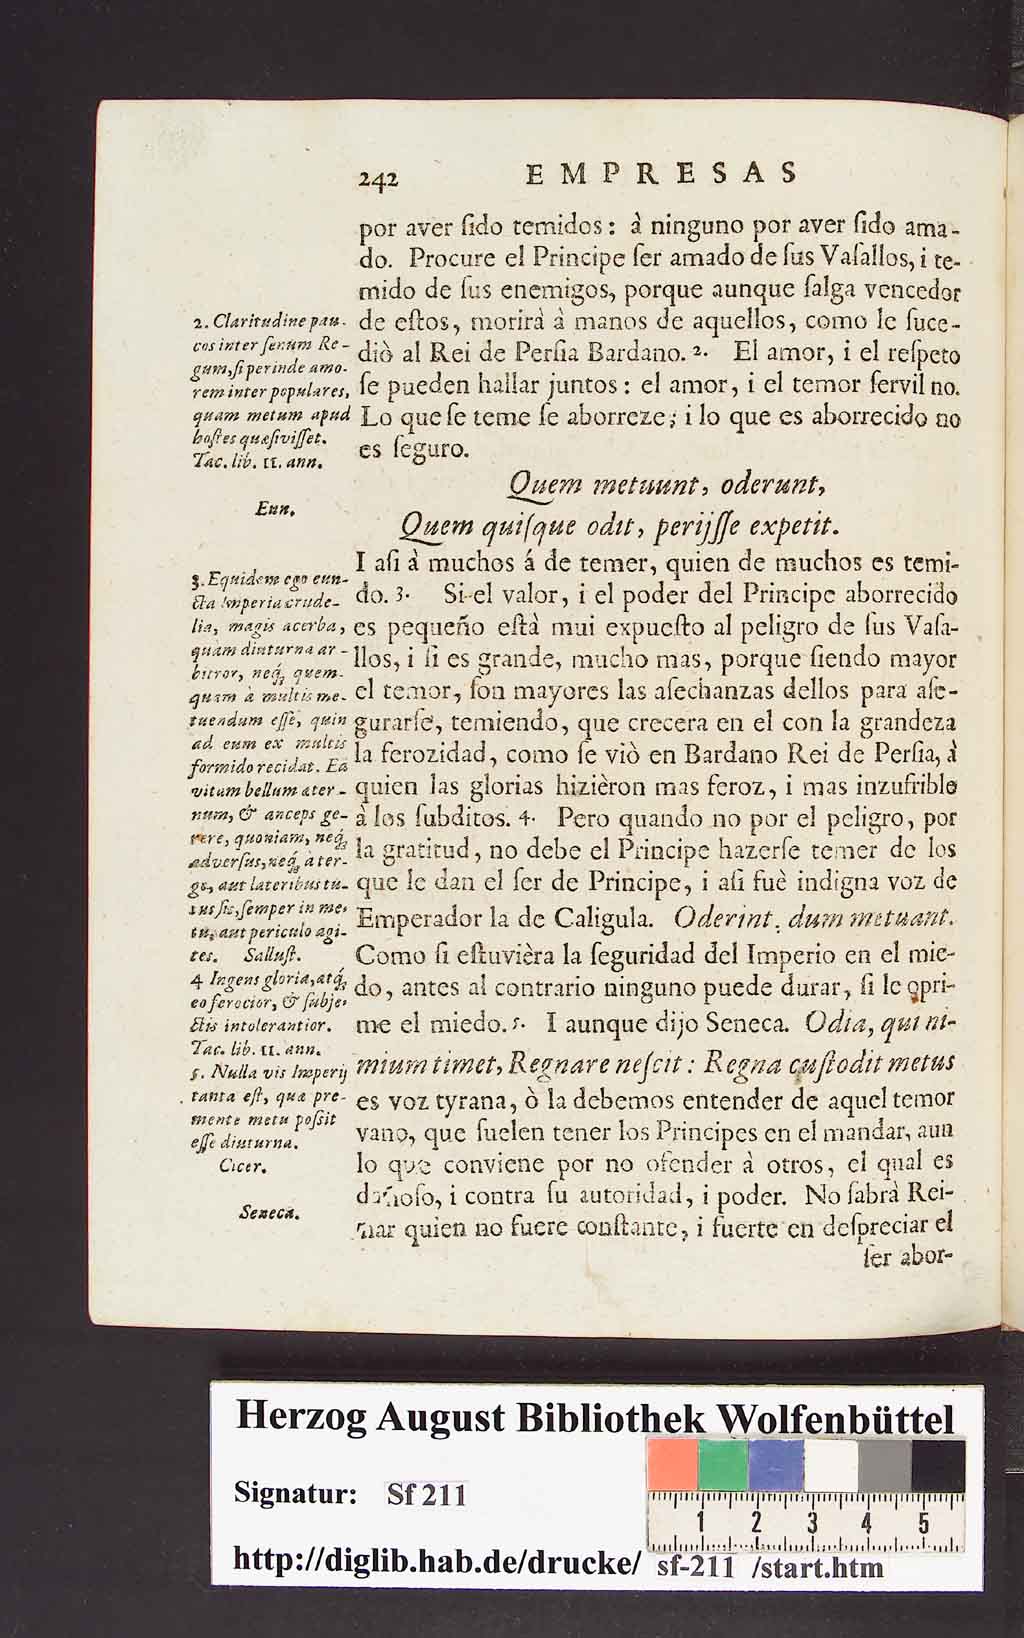 242 EMPRESAS
por aver ſido temidos: à ninguno por aver ſido ama-
do. Procure el Principe ſer amado de ſus Vaſallos, i te-
mido de ſus enemigos, porque aunque ſalga vencedor
de eſtos, morirà à manos de aquellos, como le ſuce-
diò al Rei de Perſia Bardano. 2. El amor, i el reſpeto
ſe pueden hallar juntos: el amor, i el temor ſervil no.
Lo que ſe teme ſe aborreze; i lo que es aborrecido no
es ſeguro.
Quem metuunt, oderunt,
Quem quiſque odit, perijſſe expetit.
I aſi à muchos á de temer, quien de muchos es temi-
do. 3. Si el valor, i el poder del Principe aborrecido
es pequeño eſtà mui expueſto al peligro de ſus Vaſa-
llos, i ſi es grande, mucho mas, porque ſiendo mayor
el temor, ſon mayores las aſechanzas dellos para aſe-
gurarſe, temiendo, que crecera en el con la grandeza
la ferozidad, como ſe viò en Bardano Rei de Perſia, à
quien las glorias hizièron mas feroz, i mas inzufrible
à los ſubditos. 4. Pero quando no por el peligro, por
la gratitud, no debe el Principe hazerſe temer de los
que le dan el ſer de Principe, i aſi fuè indigna voz de
Emperador la de Caligula. Oderint, dum metuant.
Como ſi eſtuvièra la ſeguridad del Imperio en el mie-
do, antes al contrario ninguno puede durar, ſi le opri-
me el miedo. 5. I aunque dijo Seneca. Odia, qui ni-
mium timet, Regnare neſcit: Regna cuſtodit metus
es voz tyrana, ò la debemos entender de aquel temor
vano, que ſuelen tener los Principes en el mandar, aun
lo que conviene por no ofender à otros, el qual es
dañoſo, i contra ſu autoridad, i poder. No ſabrà Rei-
nar quien no fuere conſtante, i fuerte en deſpreciar el
ſer abor-
2. Claritudine pau-
cos inter ſenum Re-
gum, ſi perinde amo-
rem inter populares,
quam metum apud
hoſtes quæſiviſſet.
Tac. lib. 11. ann.
Eun.
3. Equidem ego cun-
cta Imperia crude-
lia, magis acerba,
quàm diuturna ar-
bitror, neq; quem-
quam à multis me-
tuendum eſſe, quin
ad eum ex multis
formido recidat. Eā
vitam bellum æter-
num, & anceps ge-
rere, quoniam, neq;
adverſus, neq; à ter-
go, aut lateribus tu-
tus ſis, ſemper in me-
tu, aut periculo agi-
tes. Salluſt.
4 Ingens gloria, atq;
eo ferocior, & ſubje-
ctis intolerantior.
Tac. lib. 11. ann.
5. Nulla vis Imperij
tanta eſt, quæ pre-
mente metu poſſit
eſſe diuturna.
Cicer.
Seneca.
Herzog August Bibliothek Wolfenbüttel
Signatur: Sf 211
http://diglib.hab.de/drucke/ sf-211 /start.htm
1 2 3 4 5